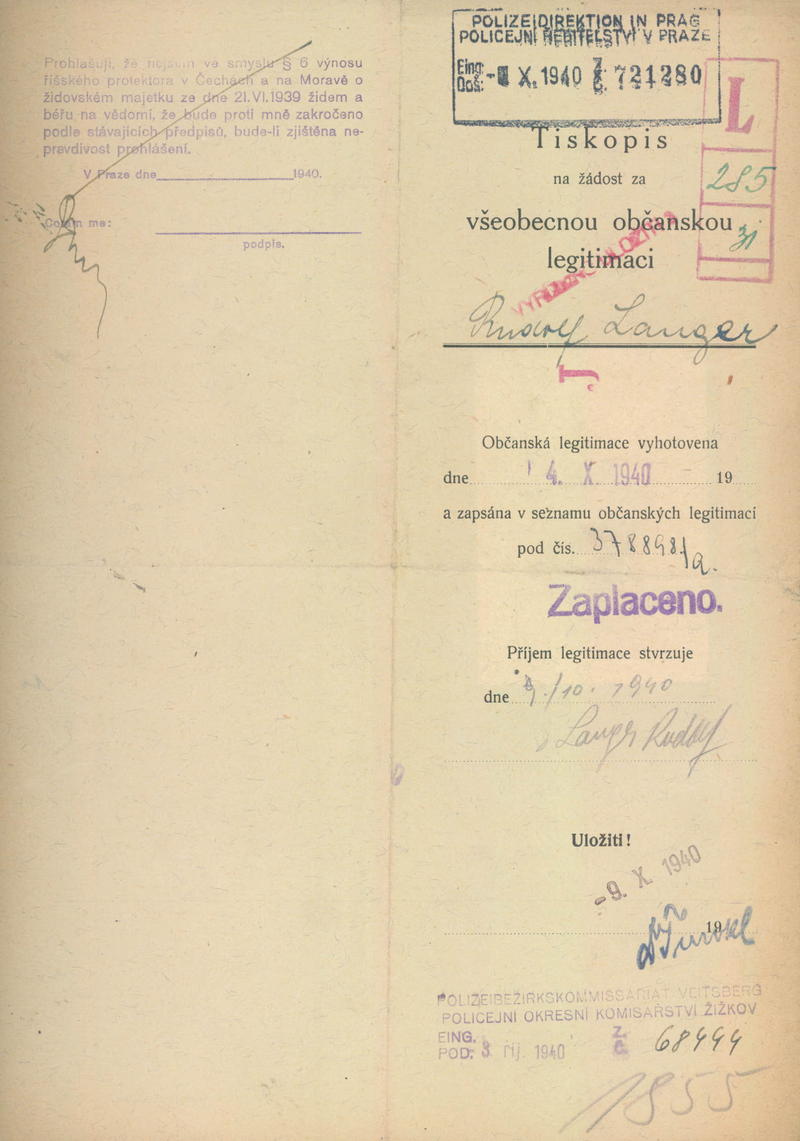 Prohlašuji, že nejsem ve smyslu § 6 výnosu
říšského protektora v Čechách a na Moravě o
židovském majetku ze dne 21.VI.1939 židem a
béřu na vědomí, že bude proti mně zakročeno
podle stávajících předpisů, bude-li zjištěna ne-
pravdivost prohlášení.
V Praze dne 1940.
me:
podpis.
POLIZEIDIREKTION IN PRAG
POLICEJNÍ ŘEDITELSTVÍ V PRAZE
Eing.
Doš.
X. 1940
721280
L
Tiskopis
na žádost za
285
všeobecnou občanskou
31
legitimaci
Rudolf Langer
J
Občanská legitimace vyhotovena
dne 4. X. 1940 19
a zapsána v seznamu občanských legitimací
pod čís.
Zaplaceno.
Příjem legitimace stvrzuje
dne 9/10. 1940
Langer Rudolf
Uložiti!
-9. X. 1940
19
POLIZEIBEZIRKSKOMMISSARIAT VEITSBERG
POLICEJNÍ OKRESNÍ KOMISAŘSTVÍ ŽIŽKOV
EING.
POD: 3. říj. 1940
Z.
Č.
68444
1855